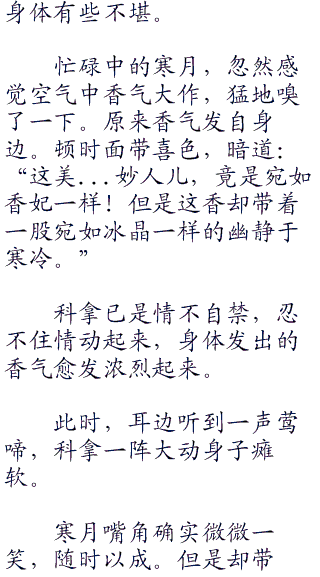 身体有些不堪。
忙碌中的寒月，忽然感
觉空气中香气大作，猛地嗅
了一下。原来香气发自身
边。顿时面带喜色，暗道：
“这美...妙人儿，竟是宛如
香妃一样！但是这香却带着
一股宛如冰晶一样的幽静于
寒冷。”
科拿已是情不自禁，忍
不住情动起来，身体发出的
香气愈发浓烈起来。
此时，耳边听到一声莺
啼，科拿一阵大动身子瘫
软。
寒月嘴角确实微微一
笑，随时以成。但是却带